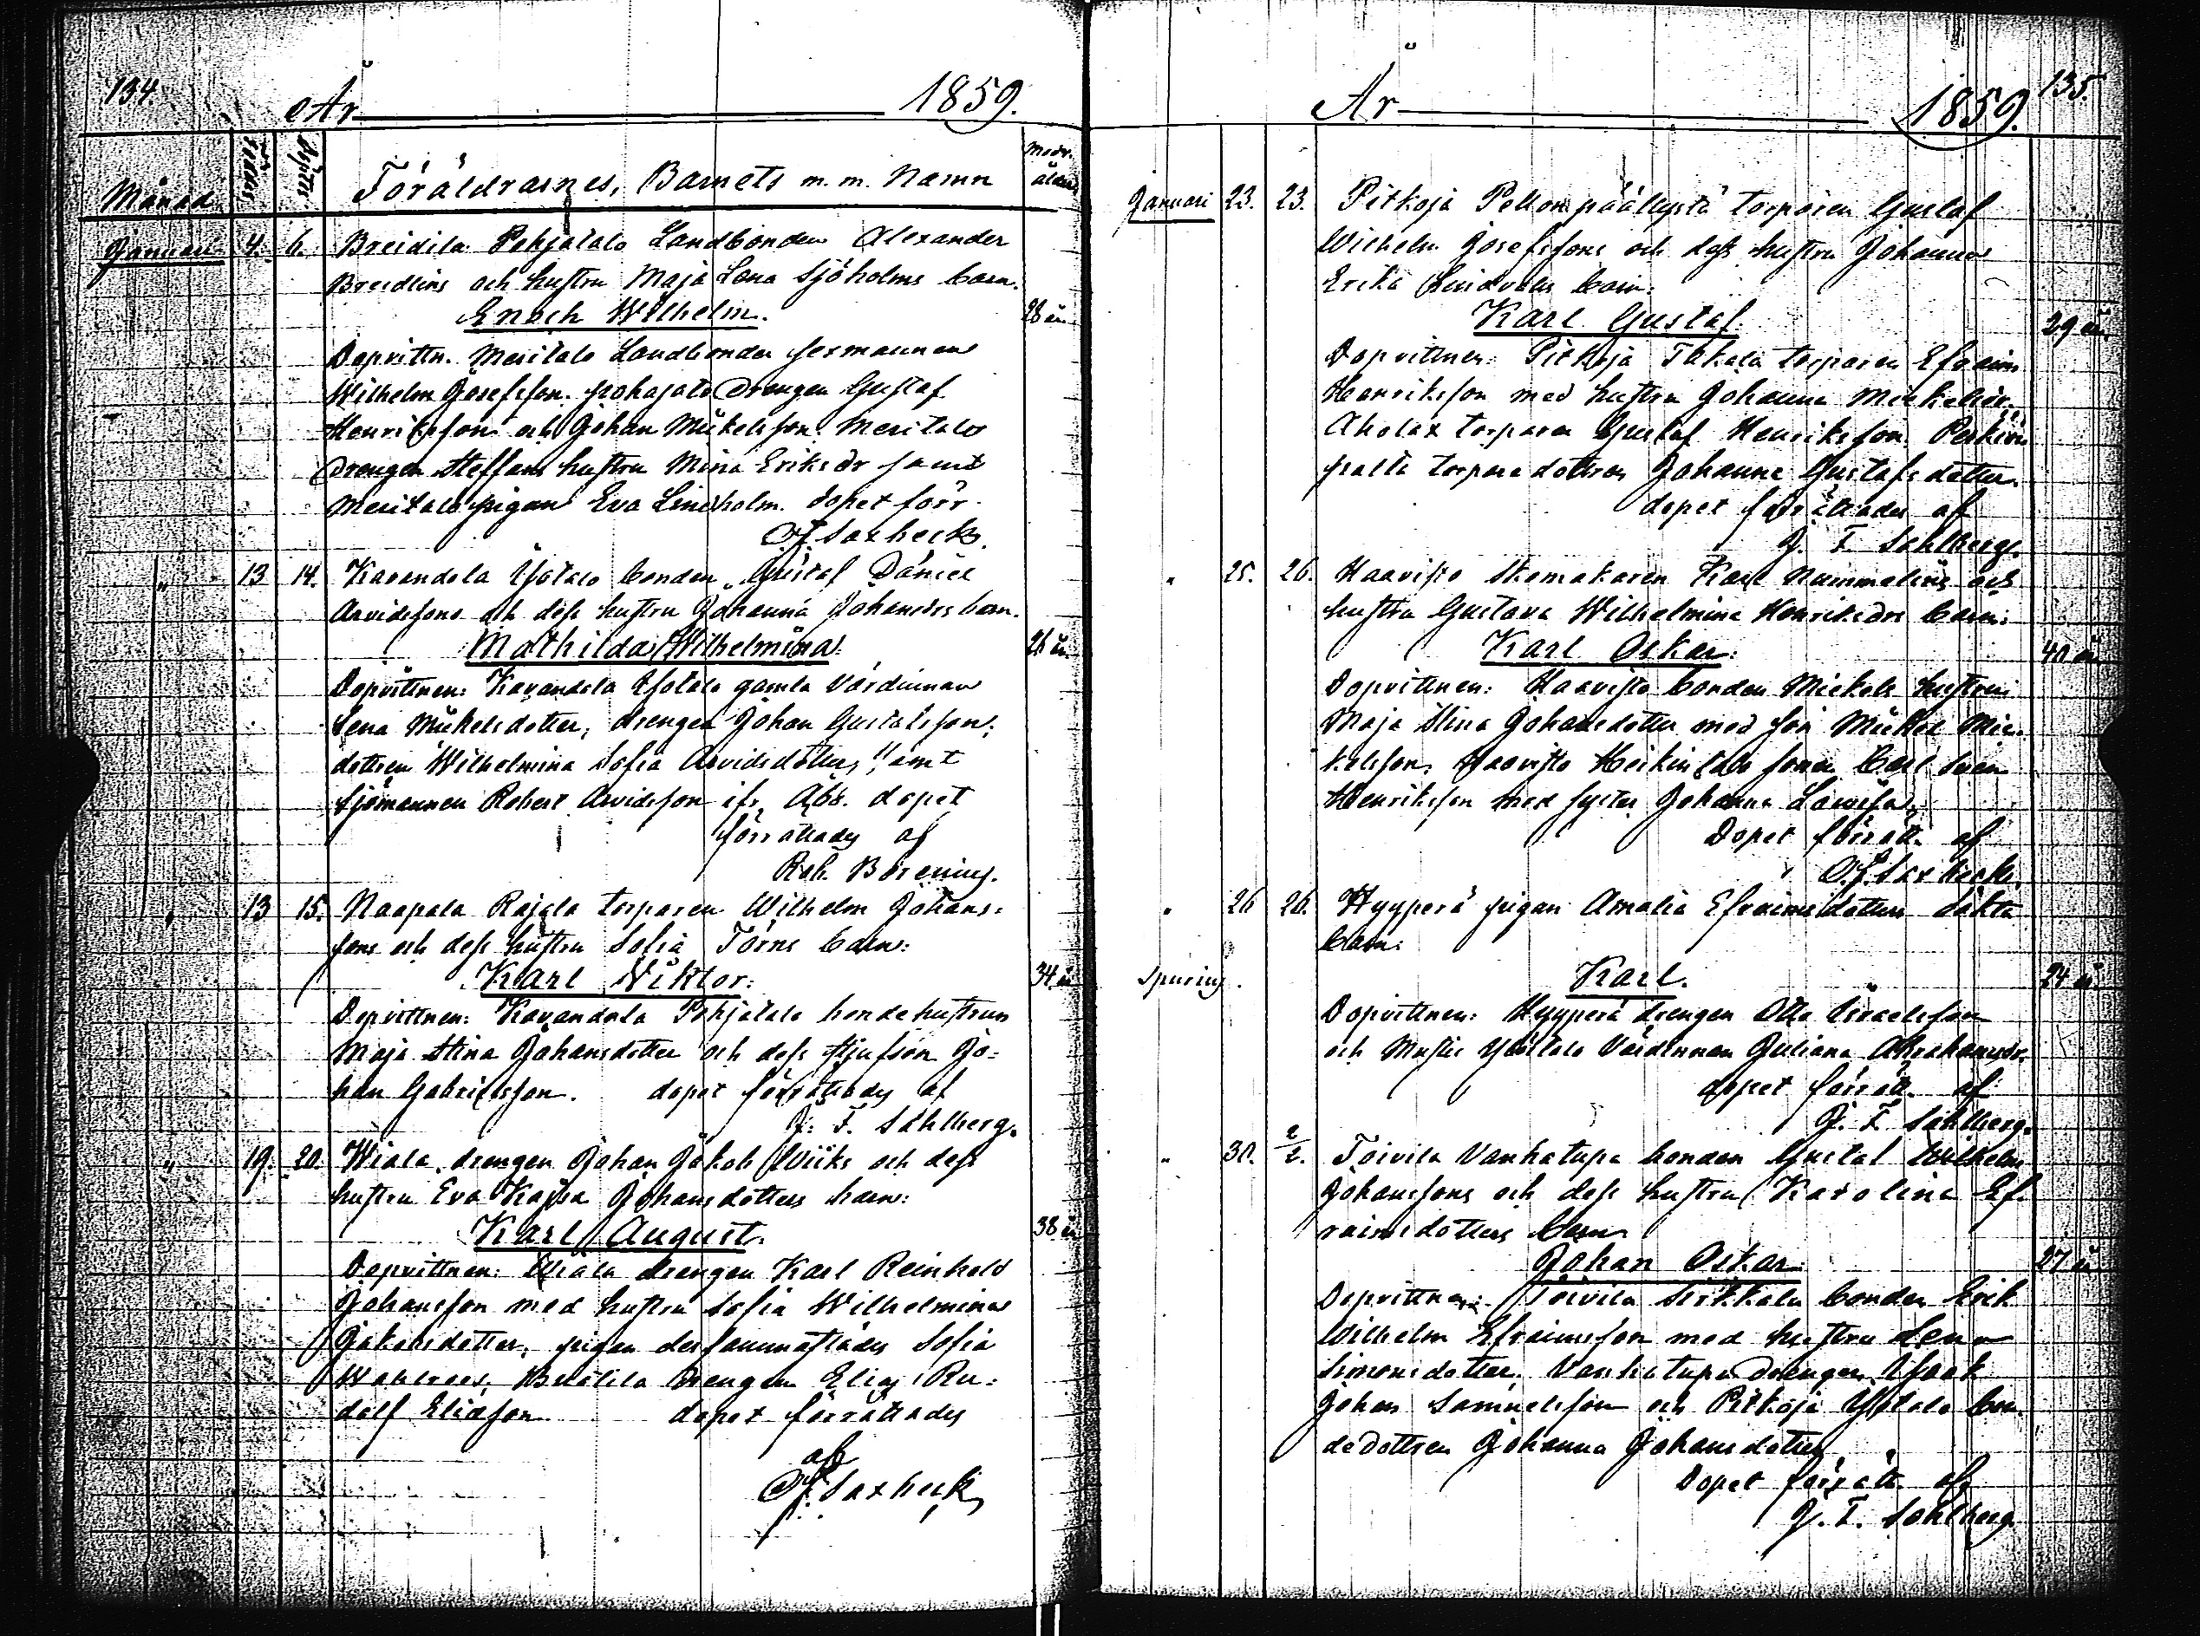 134.
År 1859.
Månad
Föddes
Döptes
Föräldrarnes, Barnets m. m. Namn
Modr. ålder
Januari 4. 6. Breidila Pohjatalo Landbonden Alexander
Breidlins och hustru Maja Lena Sjöholms barn.
Enoch Wilhelm. 28 år
Dopvittn. Meritalo Landbonden
Wilhelm Josefsson. Pohajalo Drengen Gustaf
Henriksson och Johan Mickelsson Meritalo
Drengen Steffans hustru Mina Eriksdr samt
Meritalo pigan Eva Lindholm. dopet förr.
Saxbeck.
" 13 14. Karandola Ylötalo bonden Gustaf Daniel
Arvidssons och dess hustru Johanna Johansdrs barn.
Mathilda Wilhelmina. 26 år
Dopvittnen: Karandola Ylötalo gamla Värdinnan
Lena Mickelsdotter, drengen Johan Gustafsson,
dottren Wilhelmina Sofia Arvidsdotter, samt
Sjömannen Robert Arvidsson ifr. Åbo. dopet
förrättades af
Rob. Borenius.
" 13 15. Naapala Rajala torparen Wilhelm Johans-
sons och dess hustru Sofia Törns barn:
Karl Viktor. 34 år
Dopvittnen: Karandola Pohjatalo bondehustrun
Maja Stina Johansdotter och dess styfson Jo-
han Gabrielsson. dopet förrättades af
J. F. Sahlberg.
" 19. 20. Wiala drengen Johan Jakob Wiiks och dess
hustru Eva Kajsa Johansdotters barn:
Karl August. 38 år
Dopvittnen: Wiala drengen Karl Reinhold
Johansson med hustru Sofia Wilhelmina
Jakobsdotter, pigan dersammastädes Sofia
Drengen Elias Ru-
dolf Eliasson dopet förrättades
af
Saxbeck
135.
År 1859.
Januari 23. 23. Pitkoja Pellonpäällystä torparen Gustaf
Wilhelm Josefssons och dess hustru Johanna
Erika Lindroos barn:
Karl Gustaf. 29 år
Dopvittnen: Pitkoja Takala torparen Efraim
Henriksson med hustru Johanna Mickelsdr.
Aholax torparen Gustaf Henriksson
torpare dottren Johanna Gustafsdotter.
dopet förrättades af
J. F. Sahlberg.
" 25. 26. Haavisto Skomakaren Karl Nummelins och
hustru Gustava Wilhelmina Henriksdrs barn:
Karl Oskar. 40 år
Dopvittnen: Haavisto bonden Mickels hustru
Maja Stina Johansdotter med son Mickel Mic-
kelsson, Haavisto Heikintalo sonen Carl Sven
Henriksson med syster Johanna Lowisa,
Dopet förrätt. af
Saxbeck.
" 26 26. Hyyperä pigan Amalia Efraimsdotters oäkta
barn:
Spuring. Karl. 24 år
Dopvittnen: Hyyperä drengen Otto Israelsson
och Ylötalo Värdinnan Juliana Abrahamsdr.
dopet förrätt. af
J. F. Sahlberg.
" 30. 2/2. Toivila Vanhatupa bonden Gustaf Wilhelm
Johanssons och dess hustru Karolina Ef-
raimsdotters barn
Johan Oskar. 27 år
Dopvittnen: Toivila Sirkkala bonden Erik
Wilhelm Efraimsson med hustru Lena
Simonsdotter. Vanhatupa drengen Isaak
Johan Samuelsson och Pitkoja Ylötalo bon-
dedottren Johanna Johansdotter
Dopet förrätt. af
J. F. Sahlberg